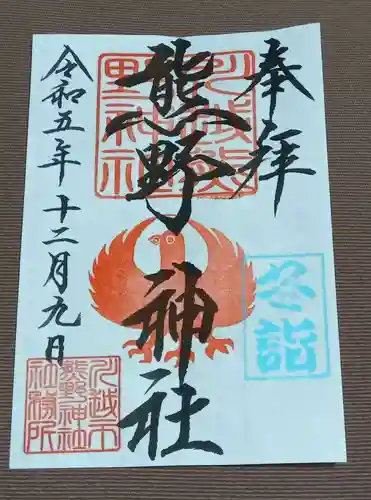 奉拝
川越熊野神社
熊野神社
冬詣
令和五年十二月九日
川越市
熊野神社
社務所